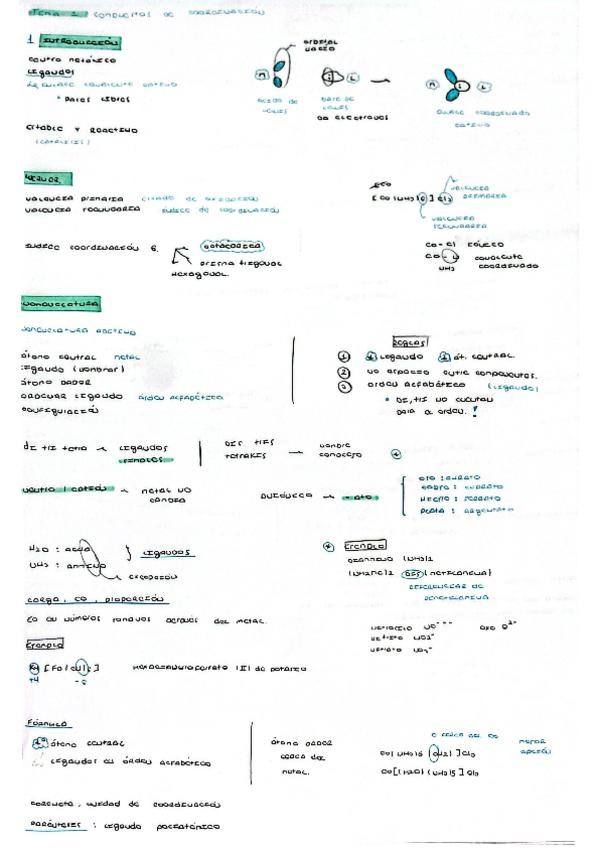 TEMA 1. COMPUESTOS DE COORDINACIÓN
1 INTRODUCCIÓN
CENTRO METÁLICO
LIGANDOS
ENLACE COVALENTE DATIVO
* PARES LIBRES
ESTABLE Y REACTIVO
ORBITAL VACÍO
M
ÁCIDO DE LEWIS
L
BASE DE LEWIS
DA ELECTRONES
M L
ENLACE COORDINADO DATIVO
WERNER
VALENCIA PRIMARIA ESTADO DE OXIDACIÓN
VALENCIA SECUNDARIA ÍNDICE DE COORDINACIÓN
ÍNDICE COORDINACIÓN 6
OCTAÉDRICA
PRISMA TRIGONAL
HEXAGONAL
VALENCIA PRIMARIA
VALENCIA SECUNDARIA
CO-Cl IÓNICO
COVALENTE
NH3 COORDINADO
NOMENCLATURA
NOMENCLATURA ADITIVA
ÁTOMO CENTRAL METAL
LIGANDO (NOMBRAR)
ÁTOMO DADOR
ORDENAR LIGANDO ORDEN ALFABÉTICO
CONFIGURACIÓN
REGLAS
1 1º LIGANDO 2º ÁT. CENTRAL.
2 NO ESPACIO ENTRE COMPONENTES.
3 ORDEN ALFABÉTICO (LIGANDO)
* DI, TRI NO CUENTAN
PARA EL ORDEN. !
DI TRI TETRA → LIGANDOS SIMPLES
BIS TRIS TETRAKIS → NOMBRE COMPLEJO *
NEUTRO / CATIÓN → METAL NO CAMBIA
ANIÓNICO → -ATO
ORO : AURATO
COBRE : CUPRATO
HIERRO : FERRATO
PLATA : ARGENTATO
H2O : AQUA
NH3 : AMMINO
LIGANDOS
EXCEPCIÓN
* EJEMPLO
DIAMMINO (NH3)2
(NH2Me)2 BIS (METILAMINA)
DIFERENCIAR DE
DIMETILAMINA
CARGA, EO, PROPORCIÓN
EO EN NÚMEROS ROMANOS DETRÁS DEL METAL.
EJEMPLO
K4 [Fe(CN)6]
+4
HEXACIANUROFERRATO (II) DE POTASIO
FÓRMULA
1º ÁTOMO CENTRAL
2º LIGANDOS EN ORDEN ALFABÉTICO
ÁTOMO DADOR
CERCA DEL
METAL.
O CERCA DEL CO
MEJOR OPCIÓN
CO[(H2O)(NH3)5]Cl3
CORCHETE, UNIDAD DE COORDINACIÓN
PARÉNTESIS : LIGANDO POLIATÓMICO